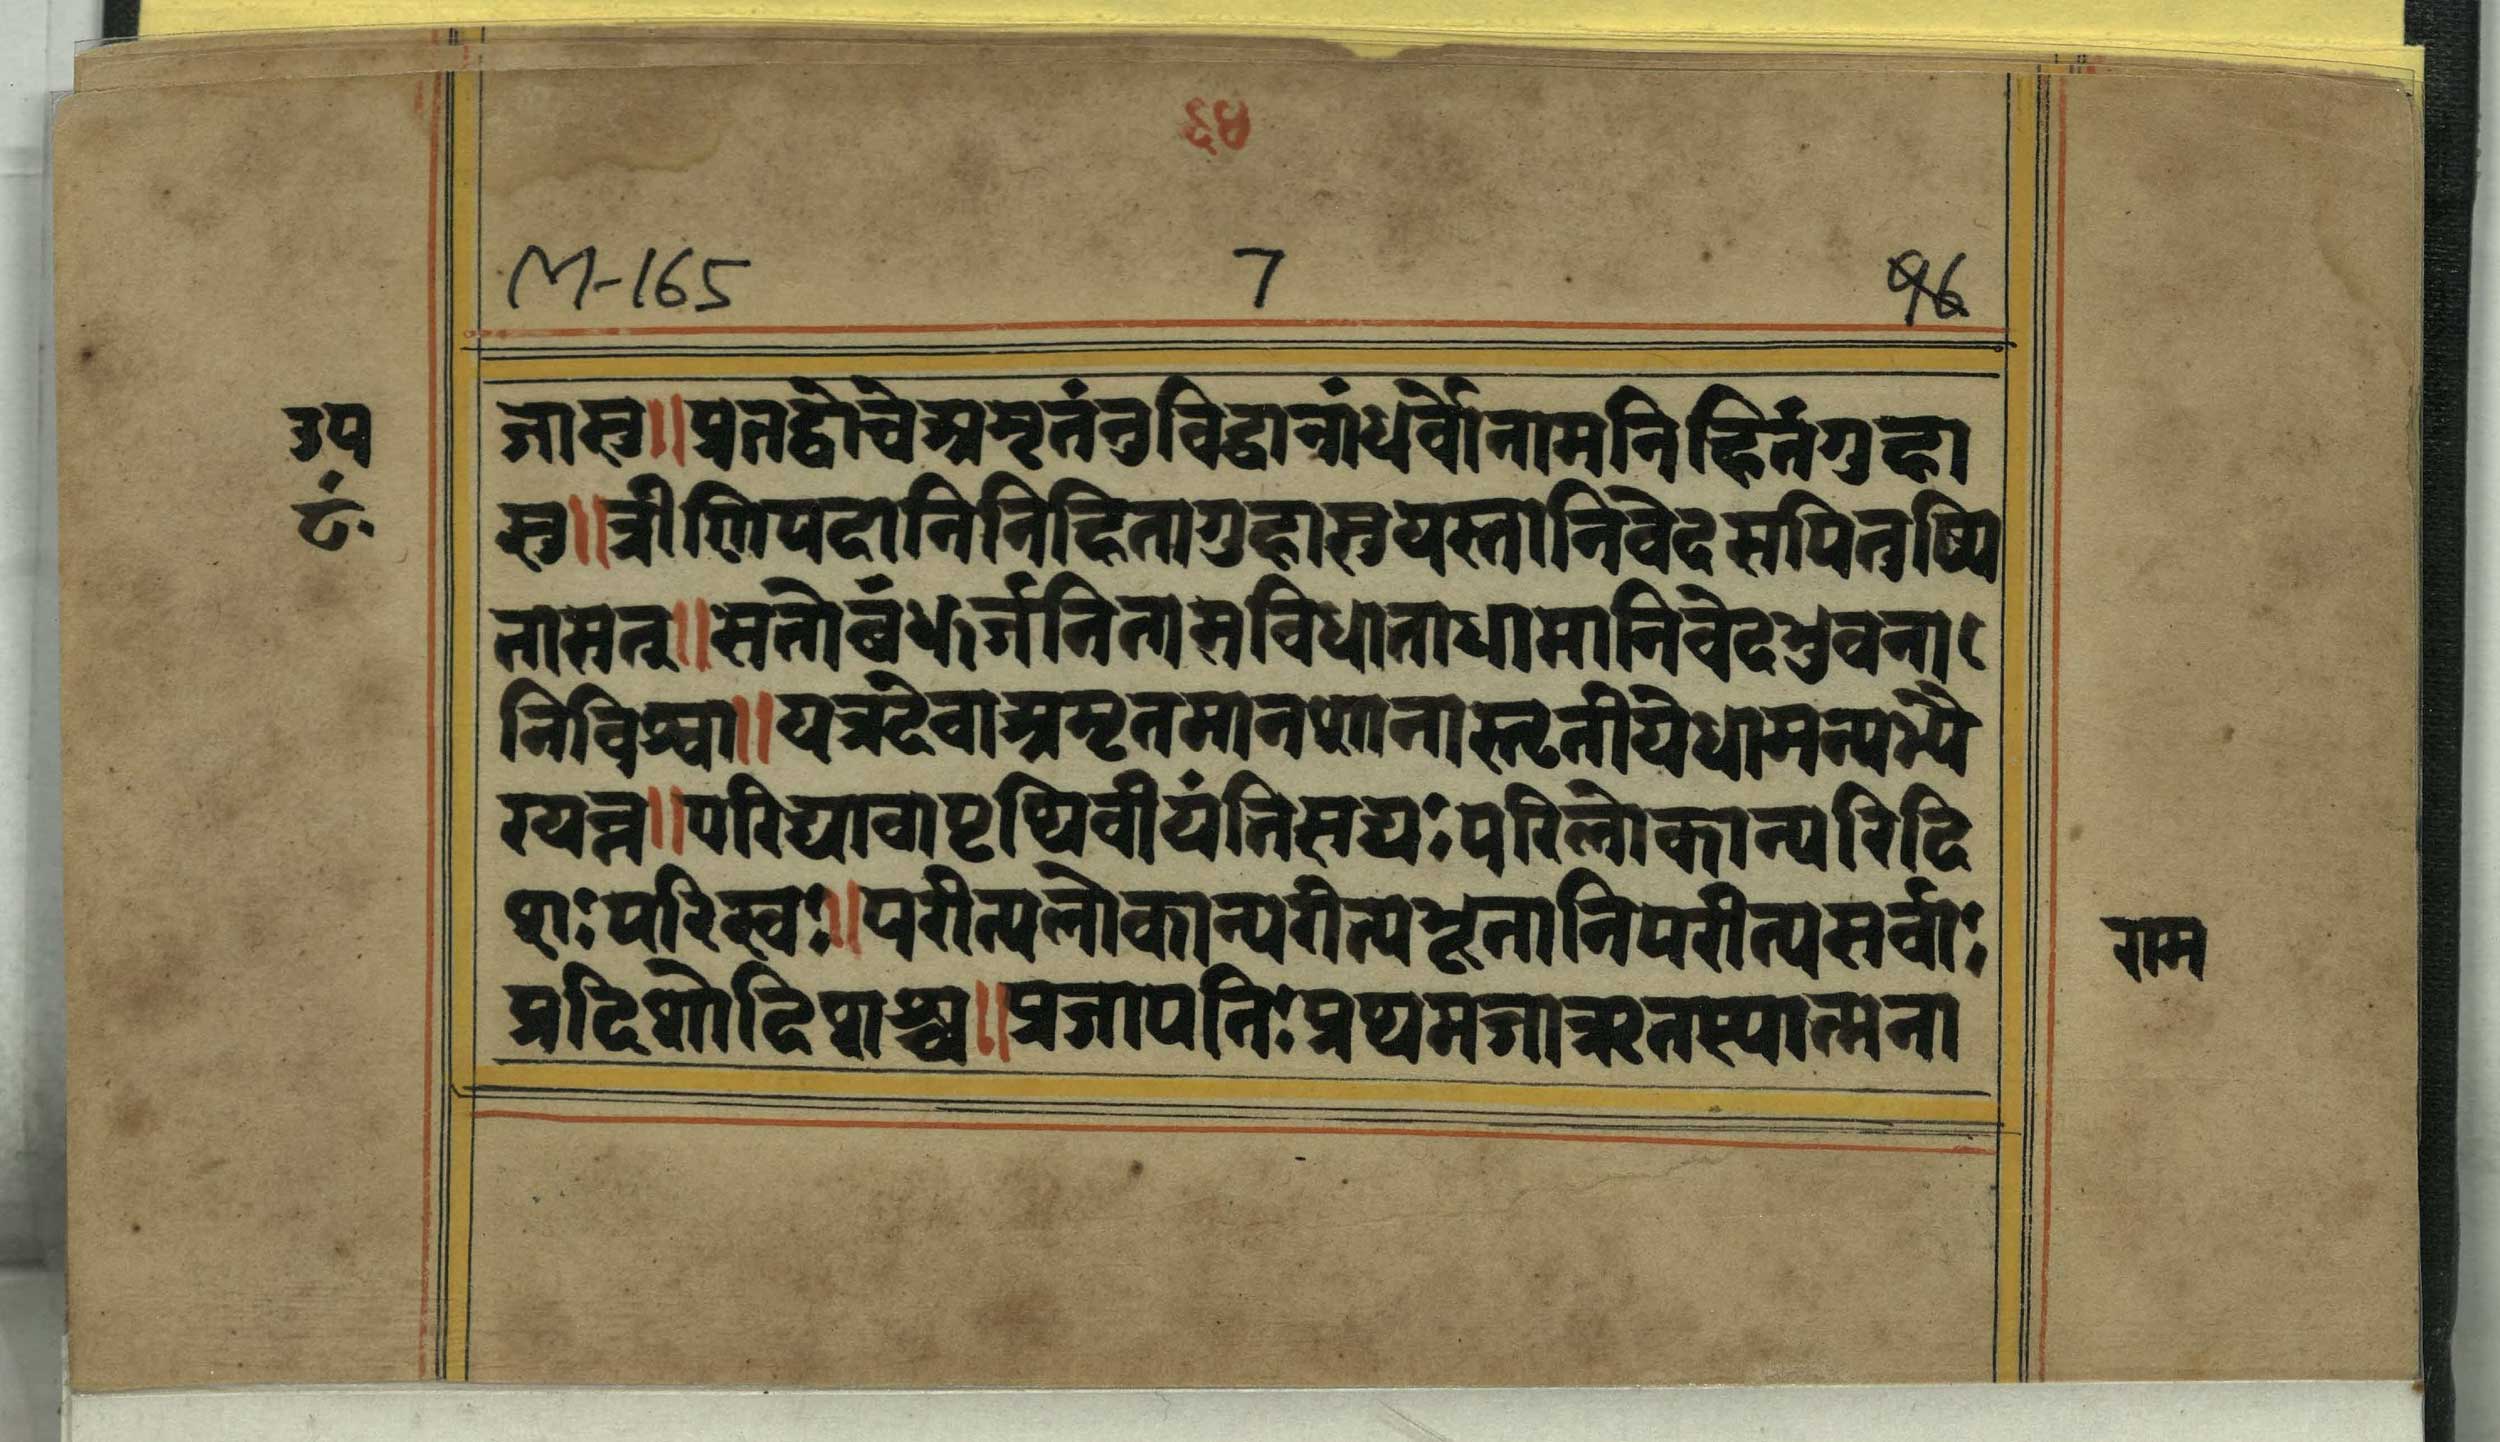 ६४
M-165 7 96
उप
जासु॥प्रतद्वोचेअमृतंनुविद्वान्गंधर्वोनामनिहितंगुहा
सु॥त्रीणिपदानिनिहितागुहासुयस्तानिवेदसपितुष्पि
तासत्॥सनोबंधुर्जनितासविधाताधामानिवेदभुवना
निविश्वा॥यत्रदेवाअमृतमानशानास्तृतीयेधामन्यभ्यै
रयन्न॥परिद्यावापृथिवीयंतिसद्यःपरिलोकान्परिदि
शःपरिस्वः॥परीत्यलोकान्परीत्यभूतानिपरीत्यसर्वाः
राम
प्रदिशोदिशश्च॥प्रजापतिःप्रथमजाऋतस्यात्मना